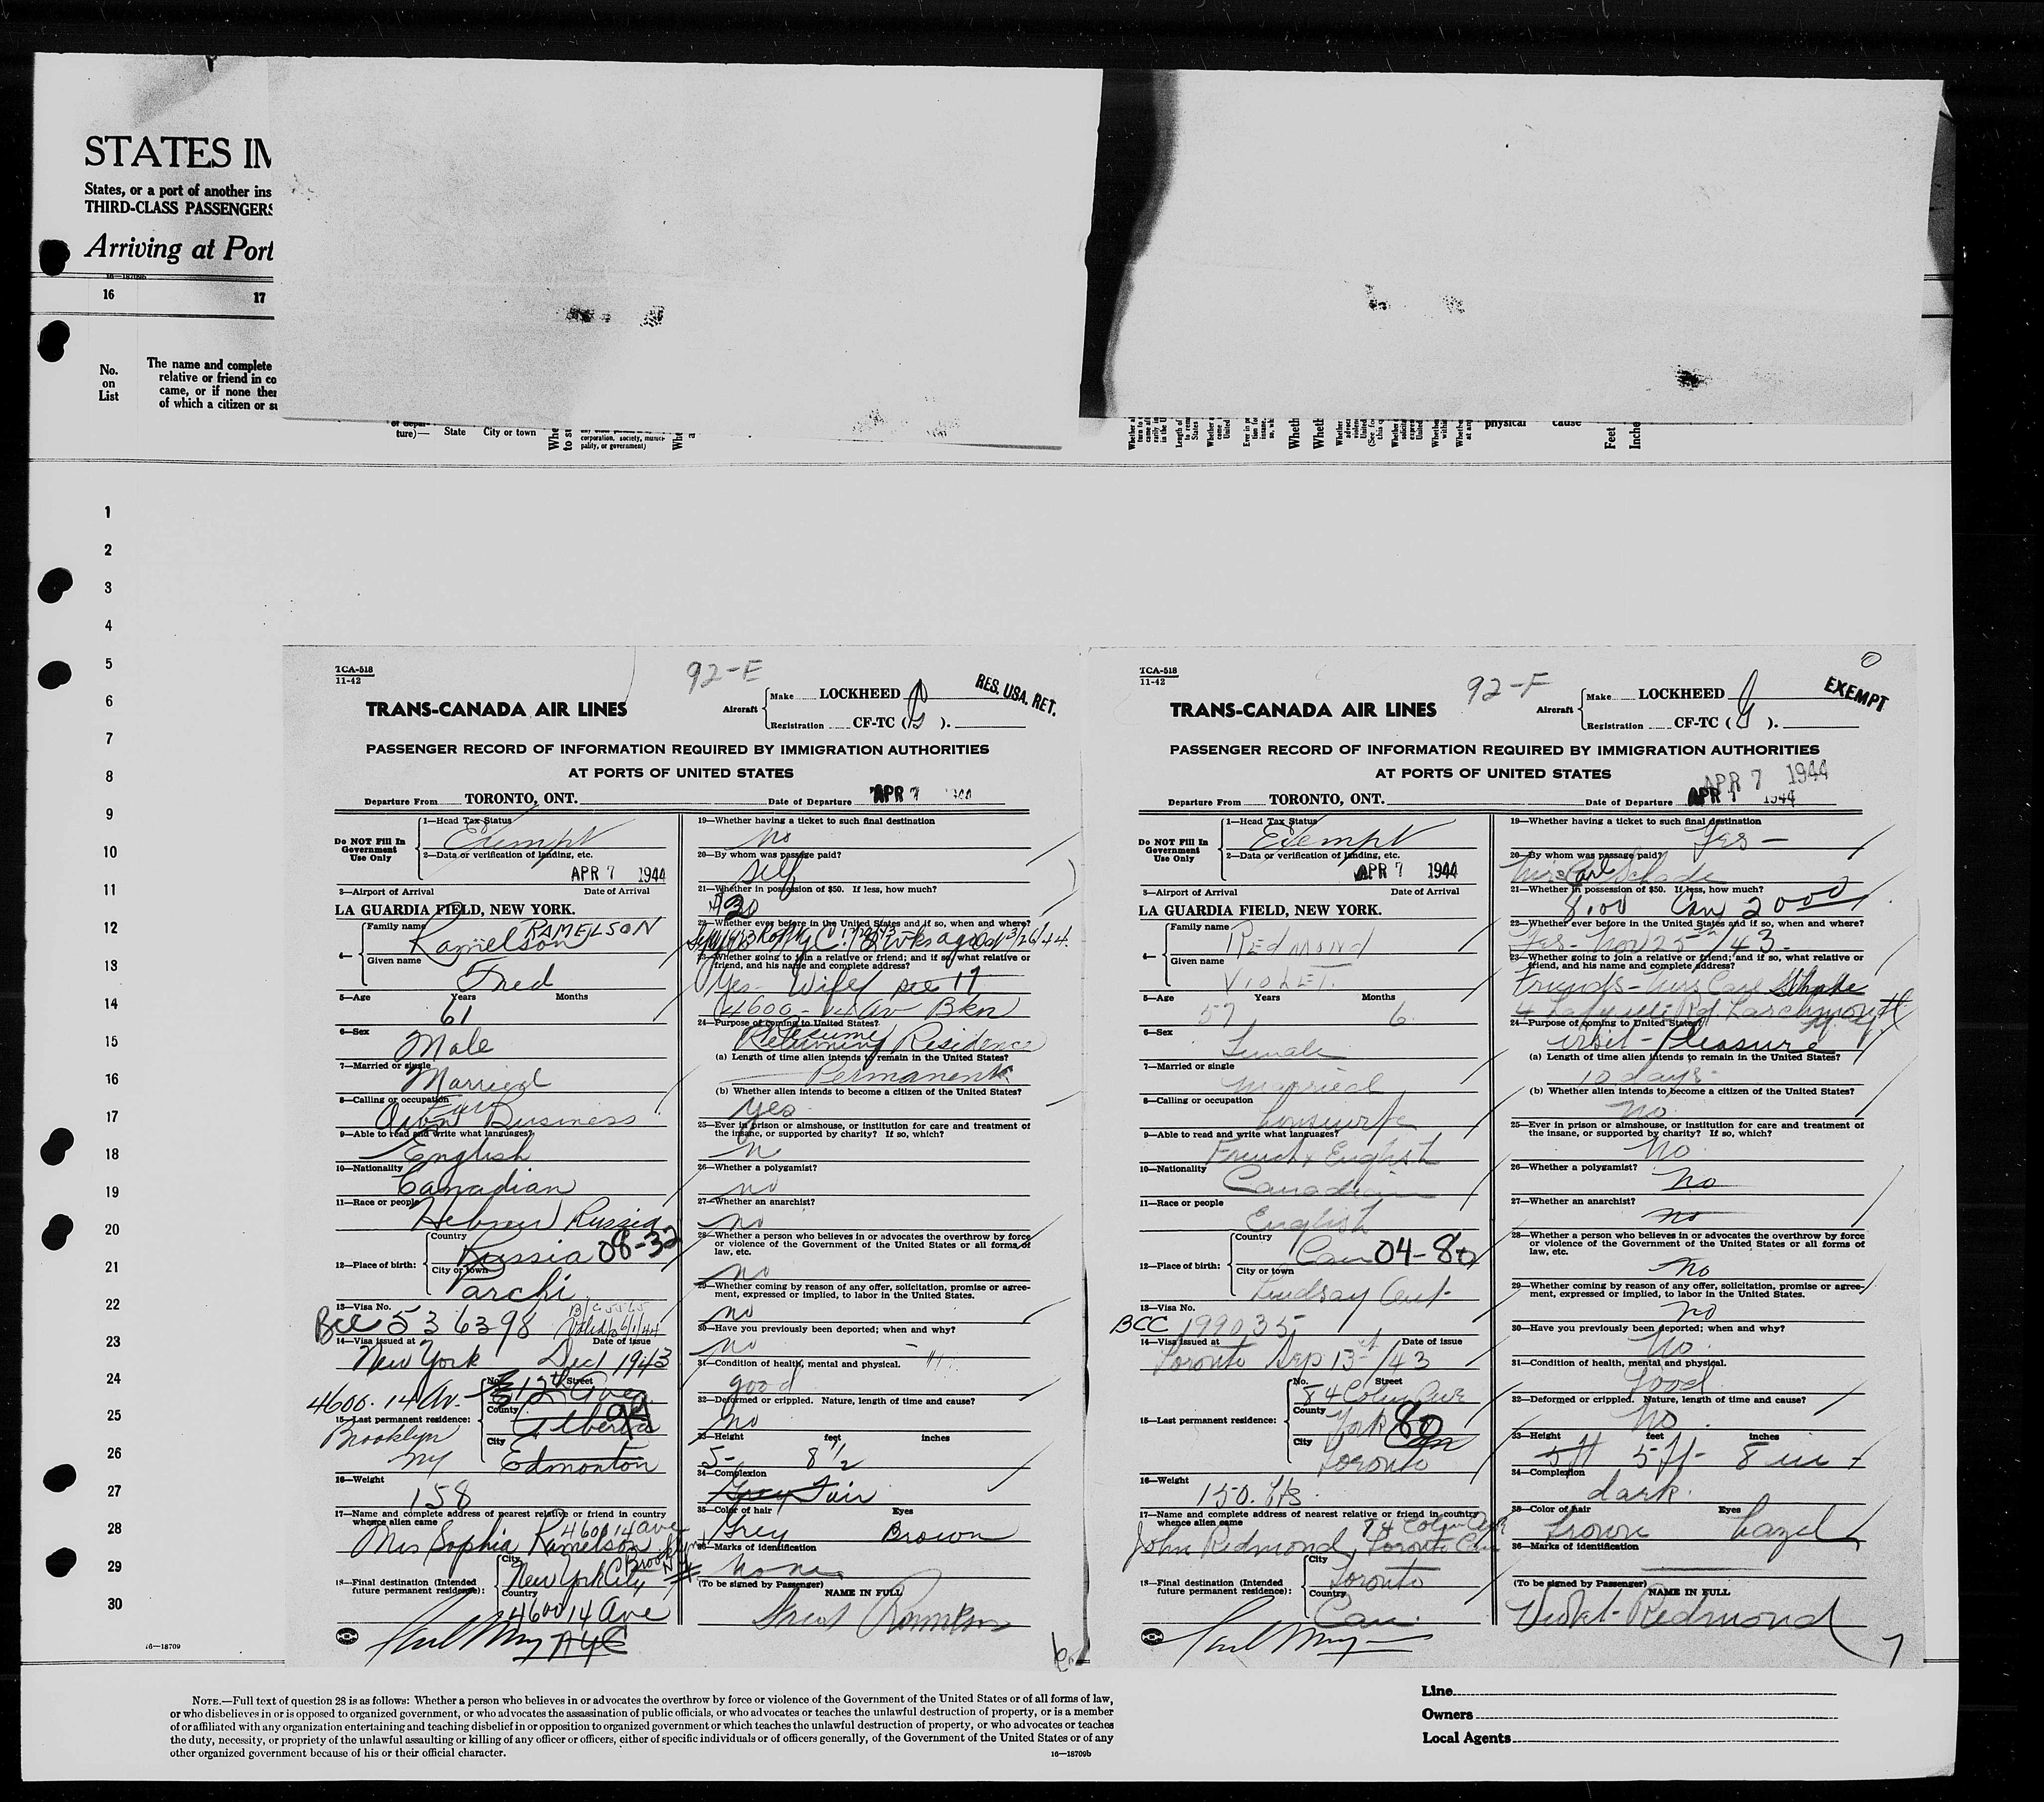 STATES IM
States, or a port of another ins
THIRD-CLASS PASSENGERS
Arriving at Port
16 17
No.
on
List
The name and complete
relative or friend in co
came, or if none then
of which a citizen or su
ture)—
State
City or town
corporation, society, munici-
pality, or government)
physical
cause
Feet
Inche
1
2
3
4
5
6
7
8
9
10
11
12
13
14
15
16
17
18
19
20
21
22
23
24
25
26
27
28
29
30
16—18709
TCA-518
11-42
92-E
RES. USA. RET.
TRANS-CANADA AIR LINES
Aircraft
Make LOCKHEED
Registration CF-TC ( ).
PASSENGER RECORD OF INFORMATION REQUIRED BY IMMIGRATION AUTHORITIES
AT PORTS OF UNITED STATES
Departure From TORONTO, ONT. Date of Departure APR 7
Do NOT Fill In
Government
Use Only
1—Head Tax Status
Exempt
2—Data or verification of landing, etc.
APR 7 1944
3—Airport of Arrival Date of Arrival
LA GUARDIA FIELD, NEW YORK.
4—
Family name RAMELSON
Ramelson
Given name
Fred
5—Age Years Months
61
6—Sex
Male
7—Married or single
Married
8—Calling or occupation
Own Fur Business
9—Able to read and write what languages?
English
10—Nationality
Canadian
11—Race or people
Hebrew Russia
12—Place of birth:
Country
Russia 08-32
City or town
Parchi
13—Visa No.
BCC 536398
14—Visa issued at Date of issue
New York Dec 1 1943
No. Street
12th Ave
4600. 14 Av.
15—Last permanent residence:
Brooklyn
NY
County
Alberta 99
City
Edmonton
16—Weight
158
17—Name and complete address of nearest relative or friend in country
whence alien came
4600 14 ave
Mrs Sophia Ramelson Brooklyn
18—Final destination (Intended
future permanent residence):
City
New York City
Country
4600 14 Ave
NYC
19—Whether having a ticket to such final destination
no
20—By whom was passage paid?
self
21—Whether in possession of $50. If less, how much?
$30
22—Whether ever before in the United States and if so, when and where?
23—Whether going to join a relative or friend; and if so, what relative or
friend, and his name and complete address?
Yes- Wife see 17
4600 - 14 Av Bkn
24—Purpose of coming to United States?
Resume
Returning Residence
(a) Length of time alien intends to remain in the United States?
Permanent
(b) Whether alien intends to become a citizen of the United States?
Yes
25—Ever in prison or almshouse, or institution for care and treatment of
the insane, or supported by charity? If so, which?
no
26—Whether a polygamist?
no
27—Whether an anarchist?
no
28—Whether a person who believes in or advocates the overthrow by force
or violence of the Government of the United States or all forms of
law, etc.
no
29—Whether coming by reason of any offer, solicitation, promise or agree-
ment, expressed or implied, to labor in the United States.
no
30—Have you previously been deported; when and why?
no
31—Condition of health, mental and physical.
good
32—Deformed or crippled. Nature, length of time and cause?
no
33—Height feet inches
5- 8 1/2
34—Complexion
Grey Fair
35—Color of hair Eyes
Grey Brown
36—Marks of identification
None
(To be signed by Passenger) NAME IN FULL
6
TCA-518
11-42
92-F
EXEMPT
TRANS-CANADA AIR LINES
Aircraft
Make LOCKHEED
Registration CF-TC ( ).
PASSENGER RECORD OF INFORMATION REQUIRED BY IMMIGRATION AUTHORITIES
AT PORTS OF UNITED STATES
APR 7 1944
Departure From TORONTO, ONT. Date of Departure APR 7 1944
Do NOT Fill In
Government
Use Only
1—Head Tax Status
Exempt
2—Data or verification of landing, etc.
APR 7 1944
3—Airport of Arrival Date of Arrival
LA GUARDIA FIELD, NEW YORK.
4—
Family name
REDMOND
Given name
VIOLET.
5—Age Years Months
57 6
6—Sex
Female
7—Married or single
Married
8—Calling or occupation
housewife
9—Able to read and write what languages?
French & English
10—Nationality
Canadian
11—Race or people
English
12—Place of birth:
Country
Can 04-80
City or town
Lindsay Ont.
13—Visa No.
BCC 199035
14—Visa issued at Date of issue
Toronto Sep 13th/43
No. Street
84 Colin Ave
15—Last permanent residence:
County
York 80
City Can
Toronto
16—Weight
150. lbs.
17—Name and complete address of nearest relative or friend in country
whence alien came
84 Colin Ave
John Redmond, Toronto Can
18—Final destination (Intended
future permanent residence):
City
Toronto
Country
Can.
19—Whether having a ticket to such final destination
Yes -
20—By whom was passage paid?
Mrs Carl Schade
21—Whether in possession of $50. If less, how much?
8.00 Can 20 00
22—Whether ever before in the United States and if so, when and where?
Yes- Nov 25th/43-
23—Whether going to join a relative or friend; and if so, what relative or
friend, and his name and complete address?
Friends- Mrs Carl Schade
Larchmont
24—Purpose of coming to United States?
visit- Pleasure
(a) Length of time alien intends to remain in the United States?
10 days-
(b) Whether alien intends to become a citizen of the United States?
no
25—Ever in prison or almshouse, or institution for care and treatment of
the insane, or supported by charity? If so, which?
No
26—Whether a polygamist?
no
27—Whether an anarchist?
no
28—Whether a person who believes in or advocates the overthrow by force
or violence of the Government of the United States or all forms of
law, etc.
no
29—Whether coming by reason of any offer, solicitation, promise or agree-
ment, expressed or implied, to labor in the United States.
no
30—Have you previously been deported; when and why?
No.
31—Condition of health, mental and physical.
Good
32—Deformed or crippled. Nature, length of time and cause?
No.
33—Height feet inches
5 ft 5 ft- 8 in
34—Complexion
dark.
35—Color of hair Eyes
brown hazel
36—Marks of identification
(To be signed by Passenger) NAME IN FULL
Violet Redmond
7
NOTE.—Full text of question 28 is as follows: Whether a person who believes in or advocates the overthrow by force or violence of the Government of the United States or of all forms of law,
or who disbelieves in or is opposed to organized government, or who advocates the assassination of public officials, or who advocates or teaches the unlawful destruction of property, or is a member
of or affiliated with any organization entertaining and teaching disbelief in or opposition to organized government or which teaches the unlawful destruction of property, or who advocates or teaches
the duty, necessity, or propriety of the unlawful assaulting or killing of any officer or officers, either of specific individuals or of officers generally, of the Government of the United States or of any
other organized government because of his or their official character.
16—18709b
Line
Owners
Local Agents